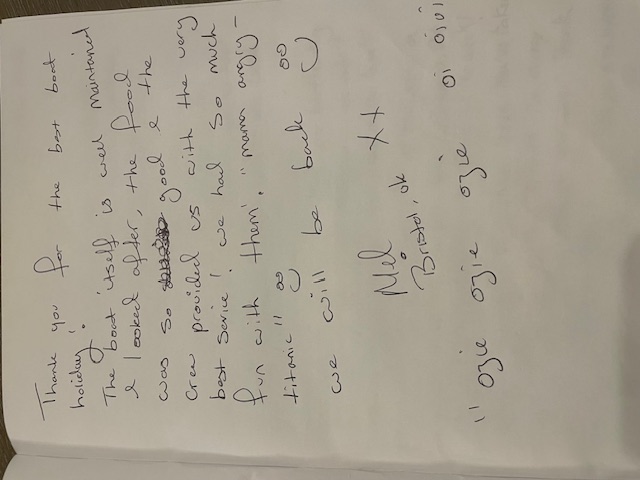 Thank you for the best boat
holiday!
The boat itself is well maintained
& looked after, the food
was so good & the
crew provided us with the very
best service! we had so much
fun with them. "mama angry -
titanic" :)
we will be back :)
Mel xx
Bristol, UK
" ozie ozie ozie oi oioi